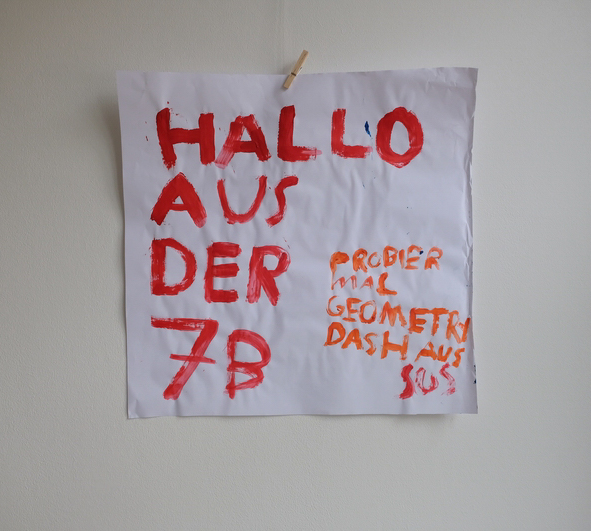 HALLO
AUS
DER
7B
PROBIER
MAL
GEOMETRY
DASH AUS
SUS